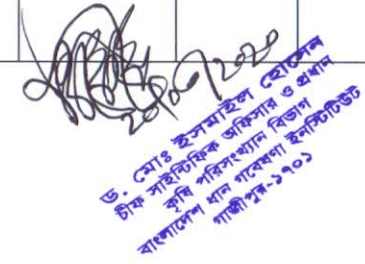 ২০.০৭.২০২০
ড. মোঃ ইসমাইল হোসেন
চীফ সাইন্টিফিক অফিসার ও প্রধান
কৃষি পরিসংখ্যান বিভাগ
বাংলাদেশ ধান গবেষণা ইনস্টিটিউট
গাজীপুর-১৭০১